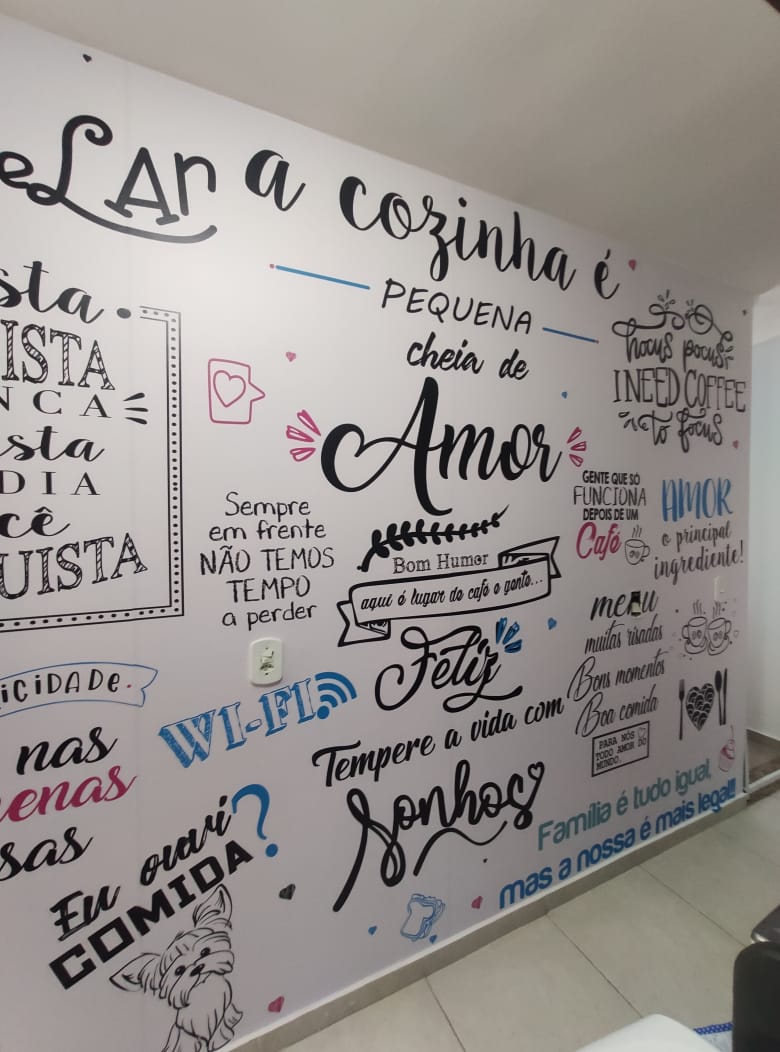 Lar
a cozinha é
PEQUENA
cheia de
Amor
hocus pocus
I NEED COFFEE
to focus
ISTA
DIA
UISTA
Sempre
em frente
NÃO TEMOS
TEMPO
a perder
Bom Humor
aqui é lugar de café e gente...
GENTE QUE SÓ
FUNCIONA
DEPOIS DE UM
Café
AMOR
o principal
ingrediente!
menu
muitas risadas
Bons momentos
Boa comida
PARA NÓS
TODO AMOR DO
MUNDO.
Feliz
WI-FI
Tempere a vida com
Sonhos
nas
Eu ouvi
COMIDA?
Família é tudo igual,
mas a nossa é mais legal!!